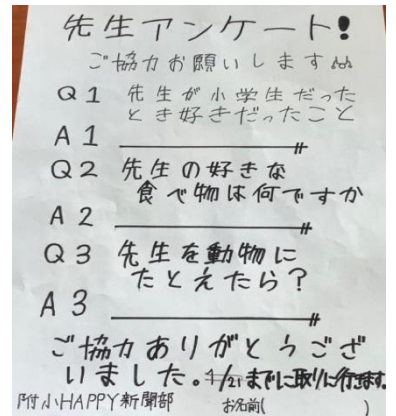 先生アンケート!
ご協力お願いします
Q1 先生が小学生だった
とき好きだったこと
A1
Q2 先生の好きな
食べ物は何ですか
A2
Q3 先生を動物に
たとえたら？
A3
ご協力ありがとうござ
いました。1/21までに取りに行きます。
附小HAPPY新聞部 お名前( )